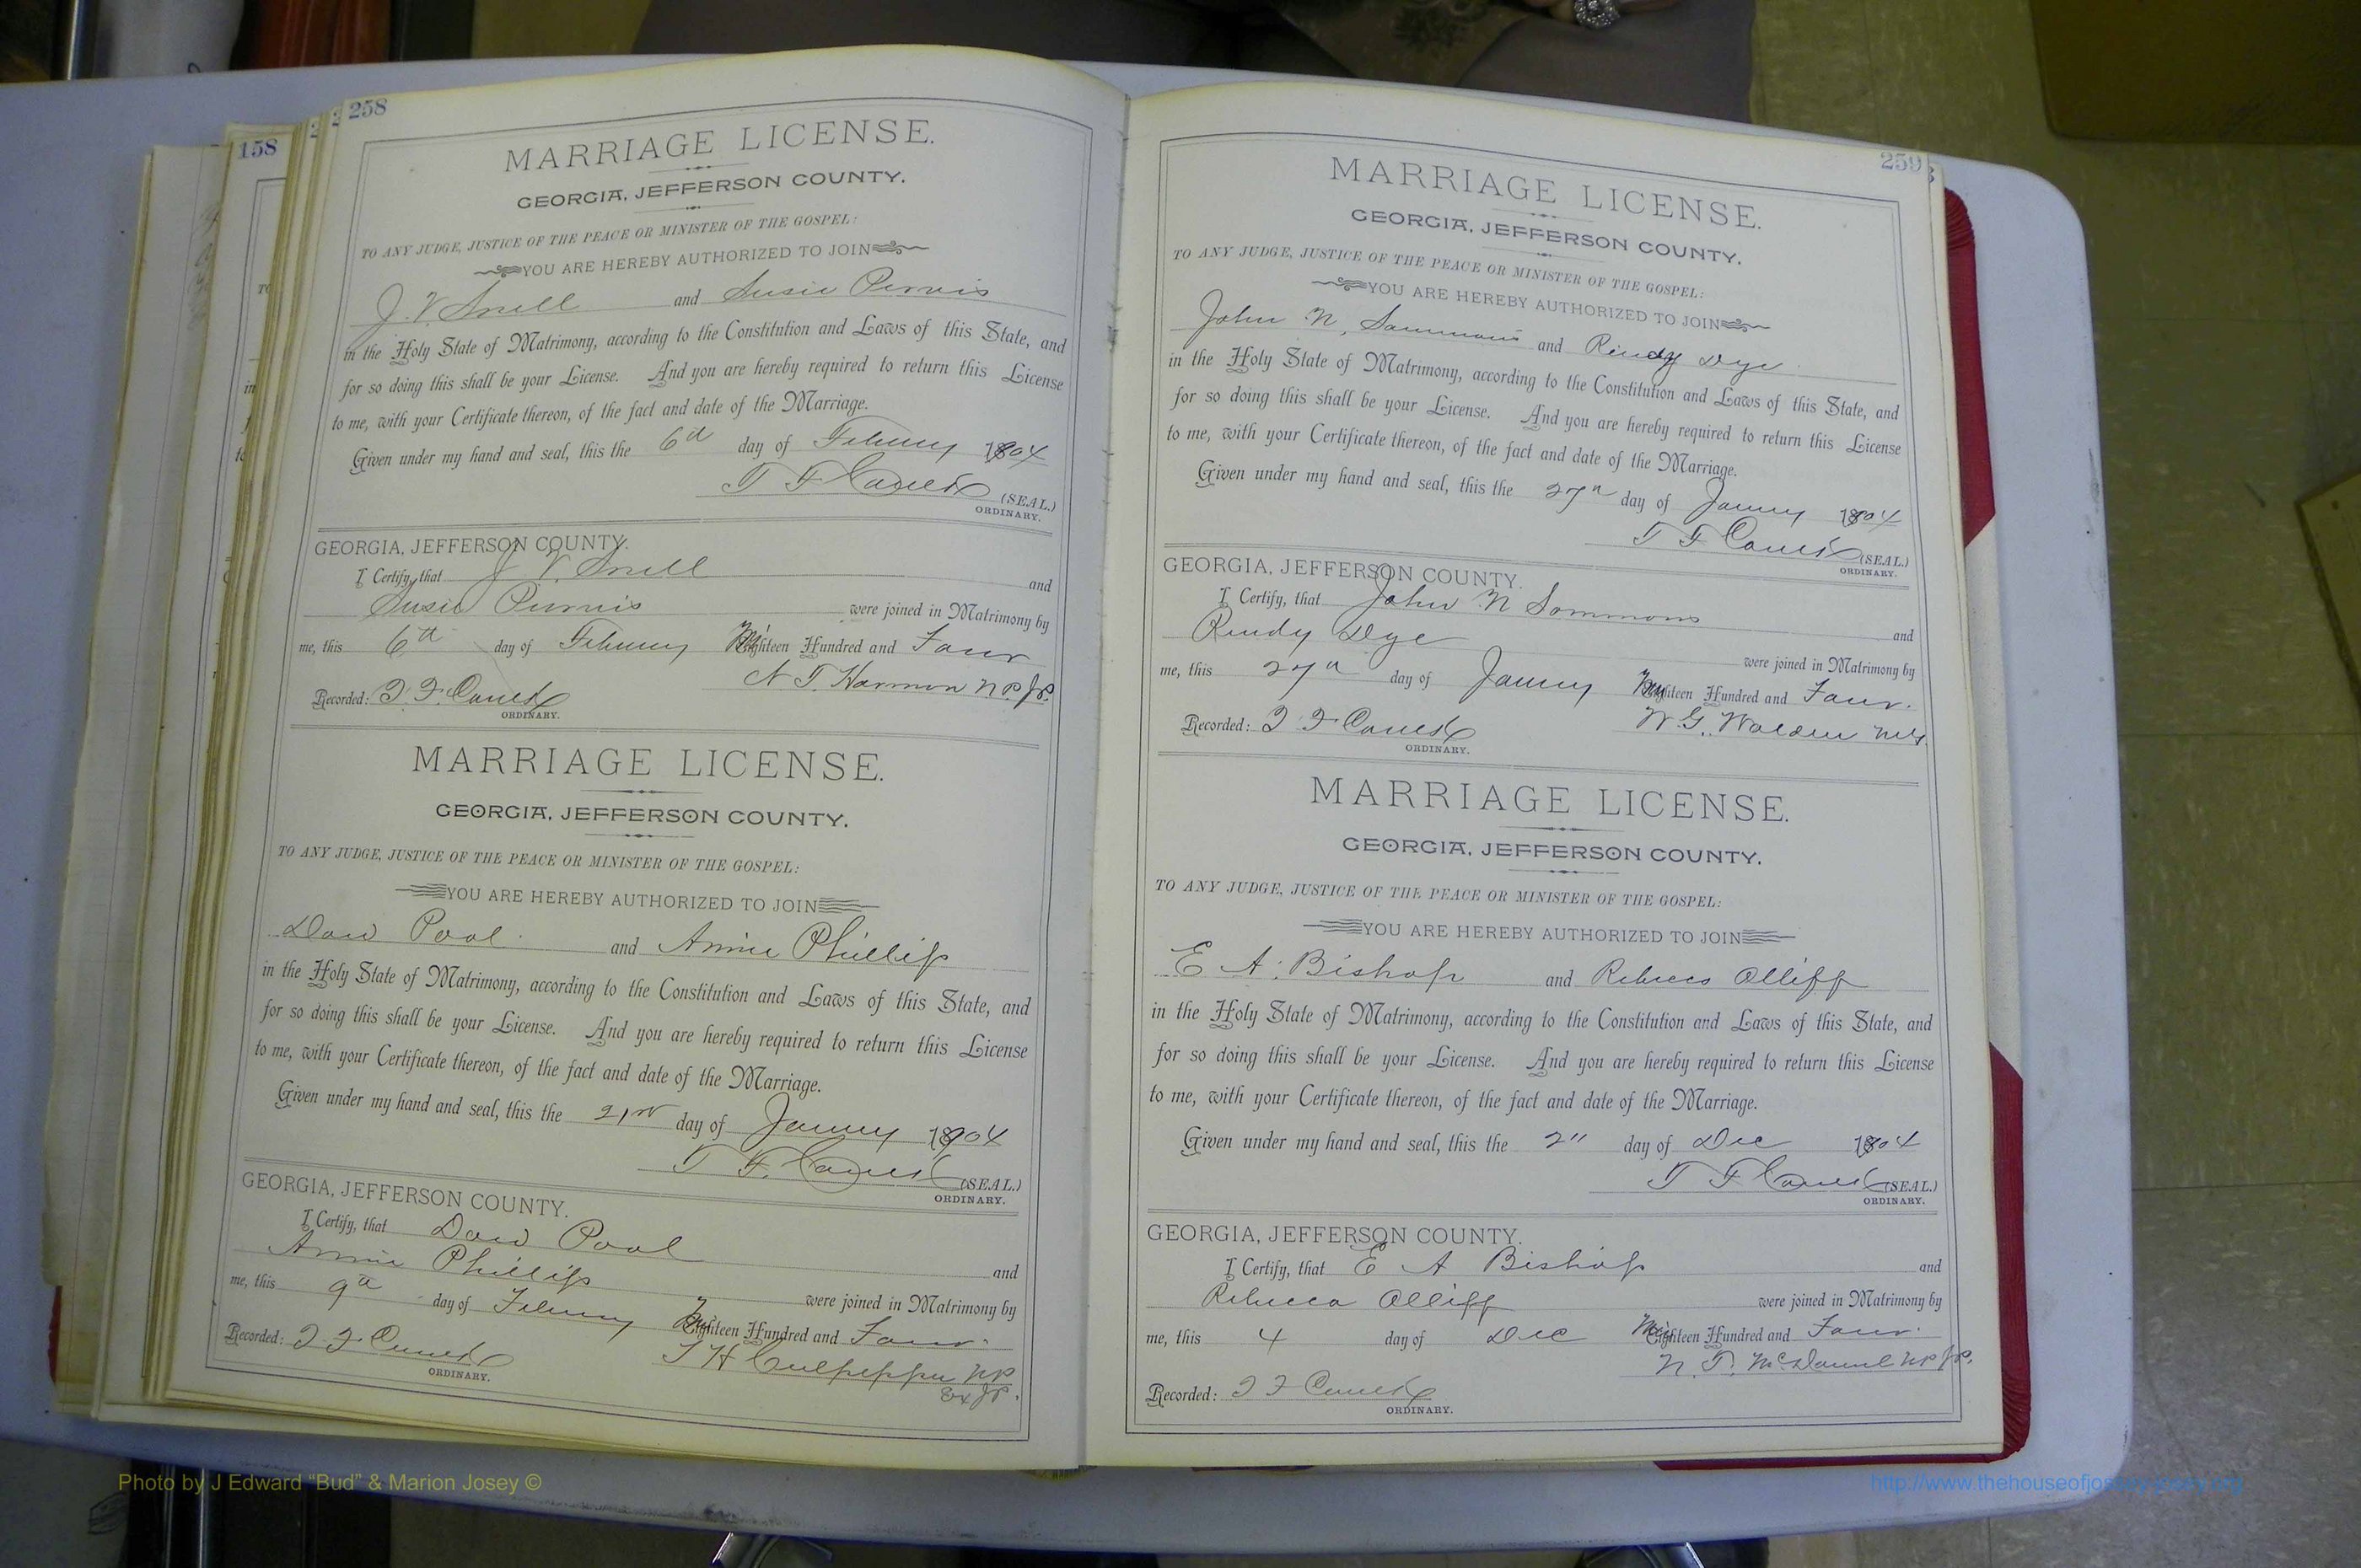 158
258
MARRIAGE LICENSE.
GEORGIA, JEFFERSON COUNTY.
TO ANY JUDGE, JUSTICE OF THE PEACE OR MINISTER OF THE GOSPEL:
YOU ARE HEREBY AUTHORIZED TO JOIN
J. V. Snell and Susie Purvis
in the Holy State of Matrimony, according to the Constitution and Laws of this State, and
for so doing this shall be your License. And you are hereby required to return this License
to me, with your Certificate thereon, of the fact and date of the Marriage.
Given under my hand and seal, this the 6th day of Februy 1904
T F (SEAL.)
ORDINARY.
GEORGIA, JEFFERSON COUNTY.
I Certify, that J. V. Snell and
Susie Purvis were joined in Matrimony by
me, this 6th day of Februy Eighteen Hundred and Four
N. T. Harmon N.P. J.P.
Recorded: T. F.
ORDINARY.
MARRIAGE LICENSE.
GEORGIA, JEFFERSON COUNTY.
TO ANY JUDGE, JUSTICE OF THE PEACE OR MINISTER OF THE GOSPEL:
YOU ARE HEREBY AUTHORIZED TO JOIN
Pool and Annie Phillips
in the Holy State of Matrimony, according to the Constitution and Laws of this State, and
for so doing this shall be your License. And you are hereby required to return this License
to me, with your Certificate thereon, of the fact and date of the Marriage.
Given under my hand and seal, this the 21st day of Januy 1904
T F. (SEAL.)
ORDINARY.
GEORGIA, JEFFERSON COUNTY.
I Certify, that Pool and
Annie Phillips were joined in Matrimony by
me, this 9th day of Februy Eighteen Hundred and Four.
T H Culpepper NP
Ex JP.
Recorded: T. F.
ORDINARY.
259
MARRIAGE LICENSE.
GEORGIA, JEFFERSON COUNTY.
TO ANY JUDGE, JUSTICE OF THE PEACE OR MINISTER OF THE GOSPEL:
YOU ARE HEREBY AUTHORIZED TO JOIN
John N. Sammons and Rindy Dye
in the Holy State of Matrimony, according to the Constitution and Laws of this State, and
for so doing this shall be your License. And you are hereby required to return this License
to me, with your Certificate thereon, of the fact and date of the Marriage.
Given under my hand and seal, this the 27th day of Januy 1904
T F (SEAL.)
ORDINARY.
GEORGIA, JEFFERSON COUNTY.
I Certify, that John N Sammons and
Rindy Dye were joined in Matrimony by
me, this 27th day of Januy Eighteen Hundred and Four.
W. G. Walden
Recorded: T. F.
ORDINARY.
MARRIAGE LICENSE.
GEORGIA, JEFFERSON COUNTY.
TO ANY JUDGE, JUSTICE OF THE PEACE OR MINISTER OF THE GOSPEL:
YOU ARE HEREBY AUTHORIZED TO JOIN
E. A. Bishop and Rebecca Olliff
in the Holy State of Matrimony, according to the Constitution and Laws of this State, and
for so doing this shall be your License. And you are hereby required to return this License
to me, with your Certificate thereon, of the fact and date of the Marriage.
Given under my hand and seal, this the 2" day of Dec 1904
T F (SEAL.)
ORDINARY.
GEORGIA, JEFFERSON COUNTY.
I Certify, that E A Bishop and
Rebecca Olliff were joined in Matrimony by
me, this 4 day of Dec Eighteen Hundred and Four.
N. T. McDaniel NP JP.
Recorded: T F
ORDINARY.
Photo by J Edward “Bud” & Marion Josey ©